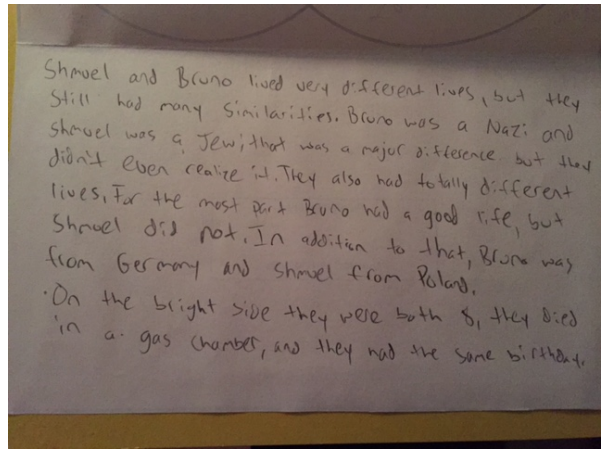 Shmuel and Bruno lived very different lives, but they
still had many similarities. Bruno was a Nazi and
Shmuel was a Jew; that was a major difference but they
didn't even realize it. They also had totally different
lives. For the most part Bruno had a good life, but
Shmuel did not. In addition to that, Bruno was
from Germany and Shmuel from Poland.
On the bright side they were both 8, they died
in a gas chamber, and they had the same birthday.